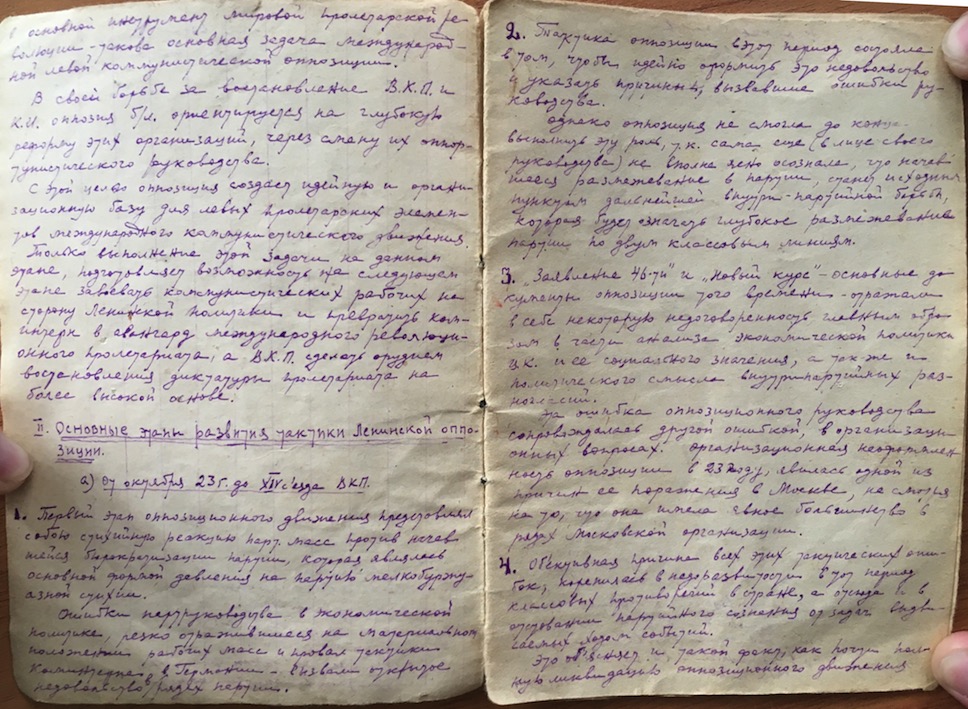 в основной инструмент мировой пролетарской ре-
волюции - такова основная задача международ-
ной левой коммунистической оппозиции.
В своей борьбе за востановление В.К.П. и
К.И. оппозиция б/л. ориентируется на глубокую
реформу этих организаций, через смену их оппор-
тунистического руководства.
С этой целью оппозиция создает идейную и органи
зационную базу для левых пролетарских элемен-
тов международного коммунистического движения.
Только выполнение этой задачи на данном
этапе, подготовляет возможность на следующем
этапе завоевать коммунистических рабочих на
сторону Ленинской политики и превратить Ком-
интерн в авангард международного революци-
онного пролетариата, а В.К.П. сделать орудием
востановления диктатуры пролетариата на
более высокой основе.
II. Основные этапы развития тактики Ленинской оппо-
зиции.
а) от октября 23г. до XIV с'езда ВКП.
1. Первый этап оппозиционного движения представлял
собою стихийную реакцию парт. масс против начав-
шейся бюрократизации партии, которая являлась
основной формой давления на партию мелкобуржу-
азной стихии.
Ошибки партруководства в экономической
политике, резко отразившиеся на материальном
положении рабочих масс и провал тактики
Коминтерна в Германии - вызвали открытое
недовольство в рядах партии.
2. Тактика оппозиции в этот период состояла
в том, чтобы идейно оформить это недовольство
и указать причины, вызвавшие ошибки ру-
ководства.
Однако оппозиция не смогла до конца
выполнить эту роль, т.к. сама еще (в лице своего
руководства) не вполне ясно осознала, что начав-
шееся размежевание в партии, станет исходным
пунктом дальнейшей внутри-партийной борьбы,
которая будет означать глубокое размежевание
партии по двум классовым линиям.
3. „Заявление 46-ти" и „новый курс" - основные до
кументы оппозиции того времени - отражали
в себе некоторую недоговоренность главным обра-
зом в части анализа экономической политики
ц.к. и ее социального значения, а так же и
политического смысла внутрипартийных раз-
ногласий.
Эта ошибка оппозиционного руководства
сопровождалась другой ошибкой, в организаци
онных вопросах. Организационная неоформлен
ность оппозиции в 23 году, явилась одной из
причин ее поражения в Москве, не смотря
на то, что она имела явное большинство в
рядах Московской организации.
4. Об'ективная причина всех этих тактических оши-
бок, коренилась в недоразвитости в тот период
классовых противоречий в стране, а отсюда и в
отставании партийного сознания от задач выдви
гаемых ходом событий.
Это об'ясняет и такой факт, как почти пол-
ную ликвидацию оппозиционного движения